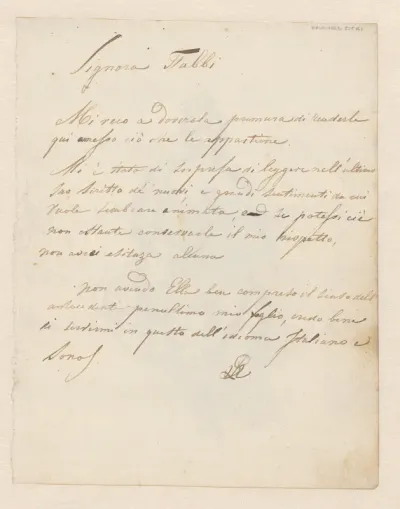 Signora Fabbri
Mi reco a doverosa premura di renderle
qui annesso ciò che le appartiene.
Mi è stato di sorpresa di leggere nell'ultimo
suo scritto de' nuovi e grandi sentimenti da cui
vuole sembrare animata, e se potessi ciò
non ostante conservarle il mio rispetto,
non avrei esitanza alcuna
non avendo Ella ben compreso il senso dell'
antecedente penultimo mio foglio, credo bene
di servirmi in questo dell'idioma Italiano e
sono